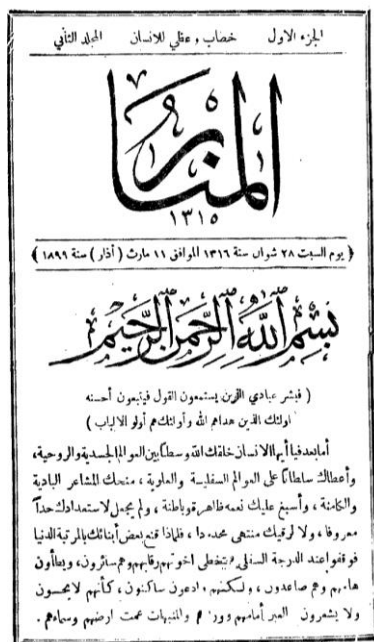 الجزء الاول خطاب عقلي للانسان المجلد الثاني
المنار
١٣١٥
( يوم السبت ٢٨ شوال سنة ١٣١٦ الموافق ١١ مارث ( آذار ) سنة ١٨٩٩ )
بسم الله الرحمن الرحيم
( فبشر عبادي الذين يستمعون القول فيتبعون أحسنه
اولئك الذين هداهم الله وأولئك هم أولو الالباب )
أما بعد فيا أيها الانسان خلقك الله وسطا بين العوالم الجسدية والروحية،
وأعطاك سلطانا على العوالم السفلية والعلوية ، منحك المشاعر البادية
والكامنة ، وأسبغ عليك نعمه ظاهرة وباطنة ، ولم يجعل لاستعدادك حدا
معروفا ، ولا لرقيك منتهى محددا ، فلماذا قنع بعض أبنائك بالمرتبة الدنيا
فوقفوا عند الدرجة السفلى يتخطى اخوتهم رقابهم وهم سائرون ، ويطأون
هامهم وهم صاعدون ، ولكنهم وادعون ساكنون ، كأنهم لا يحسون
ولا يشعرون العبر أمامهم والمنبهات عمت ارضهم وسماءهم .